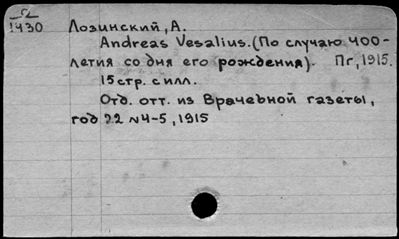 Ω
1430 Лозинский, А.
Andreas Vesalius. (По случаю 400-
летия со дня его рождения). Пг, 1915.
15 стр. с илл.
Отд. отт. из Врачебной газеты,
год 22 №4-5, 1915